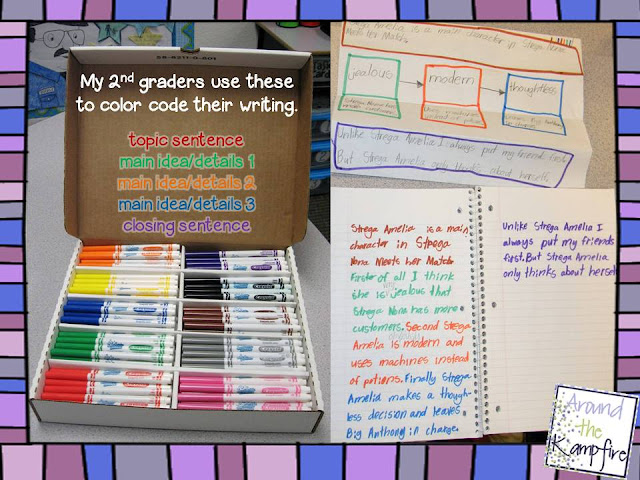 My 2nd graders use these
to color code their writing.
topic sentence
main idea/details 1
main idea/details 2
main idea/details 3
closing sentence
is a main character in Strega Nona
Meets her Match.
jealous
modern
thoughtless
Unlike Strega Amelia I always put my friends first.
But Strega Amelia only thinks about herself.
Strega Amelia is a main
character in Strega
Nona Meets her Match.
First of all I think
she is jealous that
Strega Nona has more
customers. Second Strega
Amelia is modern and
uses machines instead
of potions. Finally Strega
Amelia makes a though-
less decision and leaves
Big Anthony in charge.
Unlike Strega Amelia I
always put my friends
first. But Strega Amelia
only thinks about herself
Around
the
Kampfire